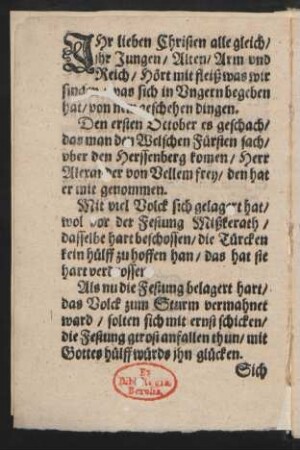 IHr lieben Christen alle gleich/
ihr Jungen/ Alten/ Arm vnd
Reich/ Hört mit fleiß was wir
singen/ was sich in Vngern begeben
hat/ von new geschehen dingen.
Den ersten October es geschach/
das man den Welschen Fürsten sach/
vber den Herssenberg komen/ Herr
Alexander von Vellem frey/ den hat
er mit genommen.
Mit viel Volck sich gelagert hat/
wol vor der Festung Mißkerath/
dasselbe hart beschossen/ die Türcken
kein hülff zu hoffen han/ das hat sie
hart verdrossen
Als nu die Festung belagert hart/
das Volck zum Sturm vermahnet
ward/ solten sich mit ernst schicken/
die Festung getrost anfallen thun/ mit
Gottes hülff würds ihn glücken.
Sich
Ex
Bibl. Regia
Berolin.